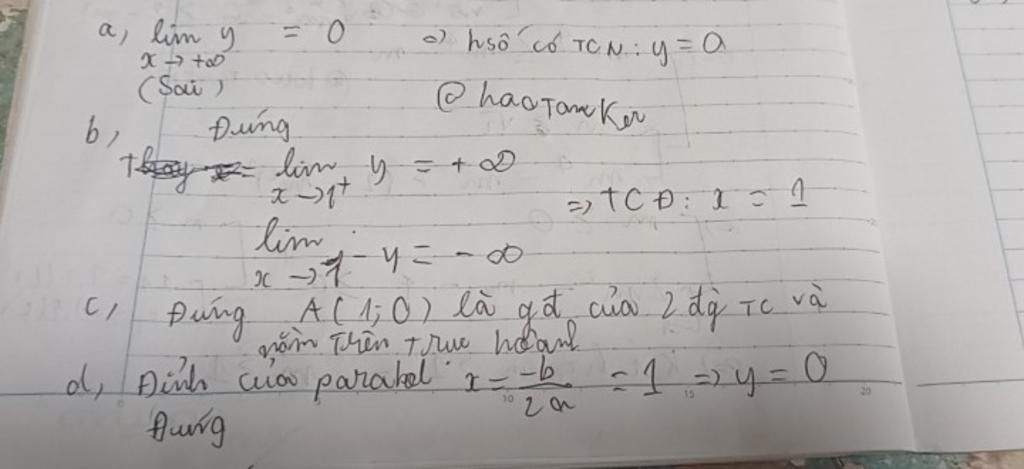 a, lim y = 0 => hsố có TCN: y = 0
x → +∞
(Sai)
@haoTamKer
b, Đúng
lim y = + ∞
x → 1⁺
=> TCĐ: x = 1
lim y = - ∞
x → 1⁻
c, Đúng A(1;0) là gđ của 2 đg TC và
nằm trên trục hoành
d, Đỉnh của parabol x = -b/2a = 1 => y = 0
Đúng